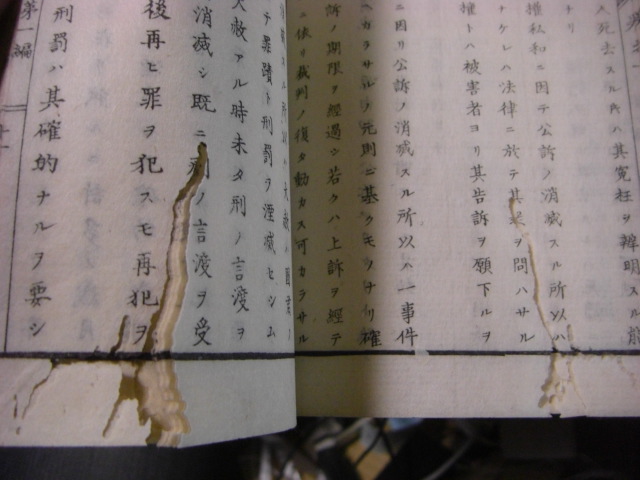 入死去スル片ハ其冤枉ヲ辨明スル
ナリ
權私和ニ因テ公訴ノ消滅スル所以ハ
ナケレハ法律ニ於テ其ヲ問ハサル
權トハ被害者ヨリ其告訴ヲ願下ルヲ
ニ因リ公訴ノ消滅スル所以ハ一事件
ヘカラサルノ元則ニ基クモノナリ確
訴ノ期限ヲ經過シ若クハ上訴ヲ經テ
ニ依リ裁判ノ復タ動カス可カラサル
テ罪蹟ト刑罰ヲ湮滅セシム
大赦アル時未タ刑ノ言渡ヲ
消滅シ既ニ刑ノ言渡ヲ受
後再ヒ罪ヲ犯スモ再犯ヲ
刑罰ハ其確的ナルヲ要シ
第一編